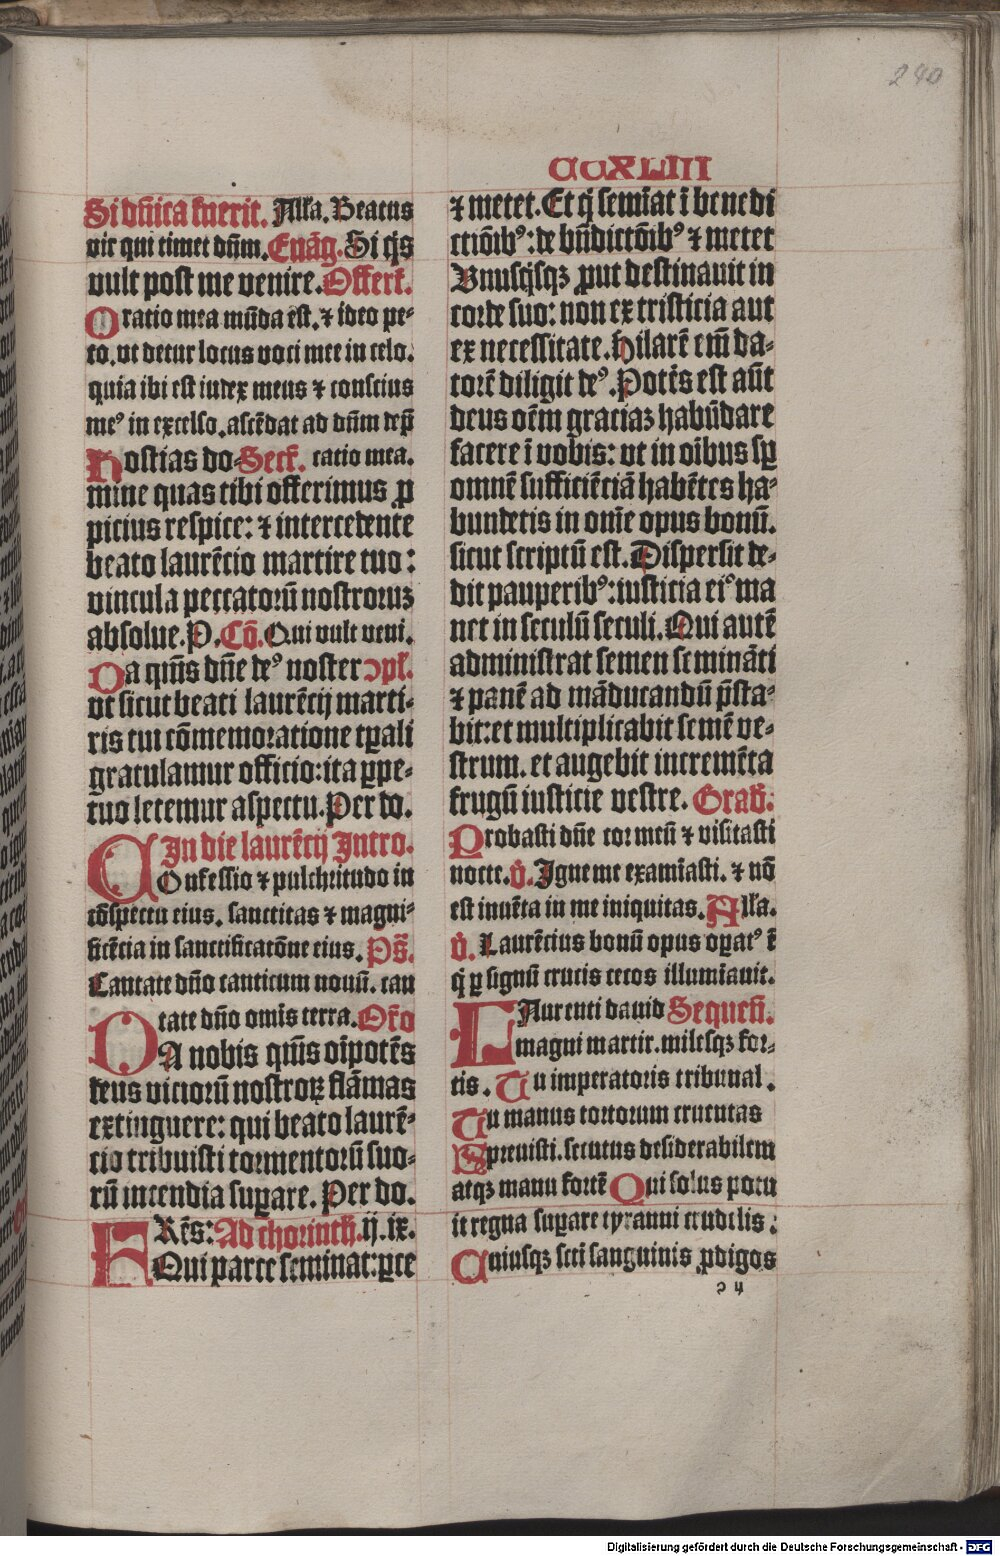 240
CCXLIII
Si dñica fuerit. All'a. Beatus
vir qui timet dñm. Euãg. Si q̃s
vult post me venire. Offert̃.
Oratio mea mũda est. ⁊ ideo pe⸗
to. vt detur locus voci mee in celo.
quia ibi est iudex meus ⁊ conscius
me⁹ in excelso. ascẽdat ad dñm dep̃
Hostias do⸗ Secr̃. catio mea.
mine quas tibi offerimus ꝓ
picius respice: ⁊ intercedente
beato laurẽcio martire tuo:
vincula peccatorũ nostroruꝫ
absolue. P. Cõ. Qui vult veni.
Da qũs dñe de⁹ noster ↄpl̃.
vt sicut beati laurẽcij marti⸗
ris tui cõmemoratione tꝑali
gratulamur officio: ita ꝑpe⸗
tuo letemur aspectu. Per do.
In die laurẽcij Intro.
Confessio ⁊ pulchritudo in
cõspectu eius. sanctitas ⁊ magni⸗
ficẽcia in sanctificatõne eius. Ps̃.
Cantate dño canticum nouũ. can
tate dño omis̃ terra. Or̃o
Da nobis qũs oĩpotẽs
deus viciorũ nostroꝝ flãmas
extinguere: qui beato laurẽ⸗
cio tribuisti tormentorũ suo⸗
rũ incendia suꝑare. Per do.
Frẽs: Ad chorinth̃. ij. ix.
Qui parce seminat: ꝑce
⁊ metet. Et q̃ semĩat ĩ benedi
ctiõib⁹: de bñdictõib⁹ ⁊ metet
Vnusq̃sqꝫ ꝓut destinauit in
corde suo: non ex tristicia aut
ex necessitate. Hilarẽ em̃ da⸗
torẽ diligit de⁹. Potẽs est aũt
deus oẽm graciaꝫ habũdare
facere ĩ vobis: vt in oĩbus sꝑ
omnẽ sufficiẽciã habẽtes ha⸗
bundetis in om̃e opus bonũ.
sicut scriptũ est. Dispersit de⸗
dit pauperib⁹: iusticia ei⁹ ma
net in seculũ seculi. Qui autẽ
administrat semen seminãti
⁊ panẽ ad mãducandũ p̃sta⸗
bit: et multiplicabit semẽ ve⸗
strum. et augebit incremẽta
frugũ iusticie vestre. Grad̃:
Probasti dñe cor meũ ⁊ visitasti
nocte. v̾. Igne me examĩasti. ⁊ nõ
est inuẽta in me iniquitas. All'a.
v̾. Laurẽcius bonũ opus oꝑat⁹ ẽ
q̃ ꝑ signũ crucis cecos illumĩauit.
Laurenti dauid Sequeñ.
magni martir. milesqꝫ for⸗
tis. Tu imperatoris tribunal.
Tu manus tortorum cruentas
Spreuisti. secutus desiderabilem
atqꝫ manu fortẽ Qui solus potu
it regna suꝑare tyranni crudelis:
Cuiusqꝫ scti sanguinis ꝓdigos
ↄ ij
Digitalisierung gefördert durch die Deutsche Forschungsgemeinschaft - DFG